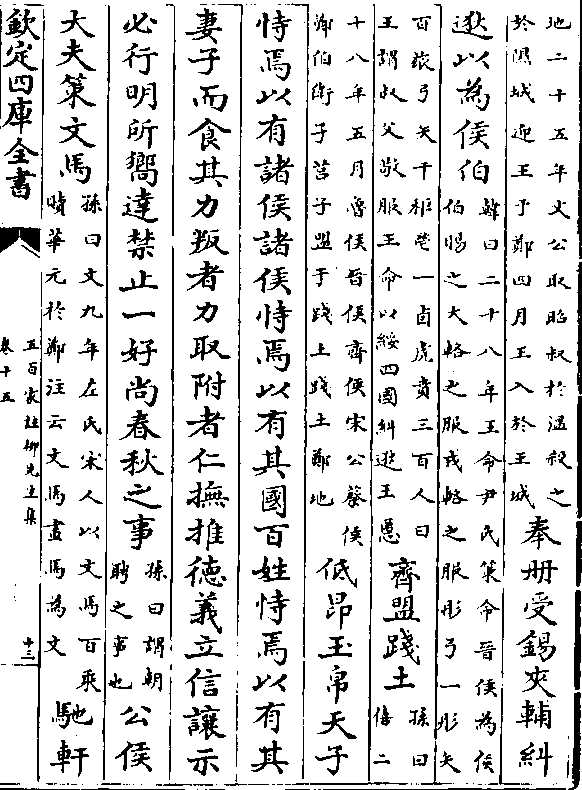 地二十五年文公取昭叔於溫殺之
於隰城迎王于鄭四月王入於王城
奉冊受錫夾輔糾
逖以為侯伯
韓曰二十八年王命尹氏策命晉侯為侯
伯賜之大輅之服戎輅之服彤弓一彤矢
百玈弓矢千秬鬯一卣虎賁三百人曰
王謂叔父敬服王命以綏四國糾逖王慝
齊盟踐土
孫曰
僖二
十八年五月魯侯晉侯齊侯宋公蔡侯
鄭伯衛子莒子盟于踐土踐土鄭地
低昂玉帛天子
恃焉以有諸侯諸侯恃焉以有其國百姓恃焉以有其
妻子而食其力叛者力取附者仁撫推德義立信讓示
必行明所嚮達禁止一好尚春秋之事
孫曰謂朝
聘之事也
公侯
大夫策文馬
孫曰文九年左氏宋人以文馬百乘
贖華元於鄭注云文馬畫馬為文
馳軒
欽定四庫全書
五百家註柳先生集
卷十五
十三